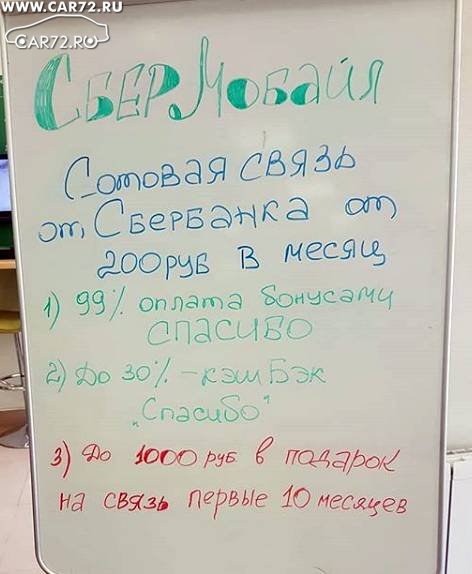 WWW.CAR72.RU
CAR72.RU
СБЕРМОБАЙЛ
Сотовая связь
от Сбербанка от
200 руб в месяц
1) 99% оплата бонусами
СПАСИБО
2) До 30% - кэшБэк
„Спасибо"
3) До 1000 руб в подарок
на связь первые 10 месяцев